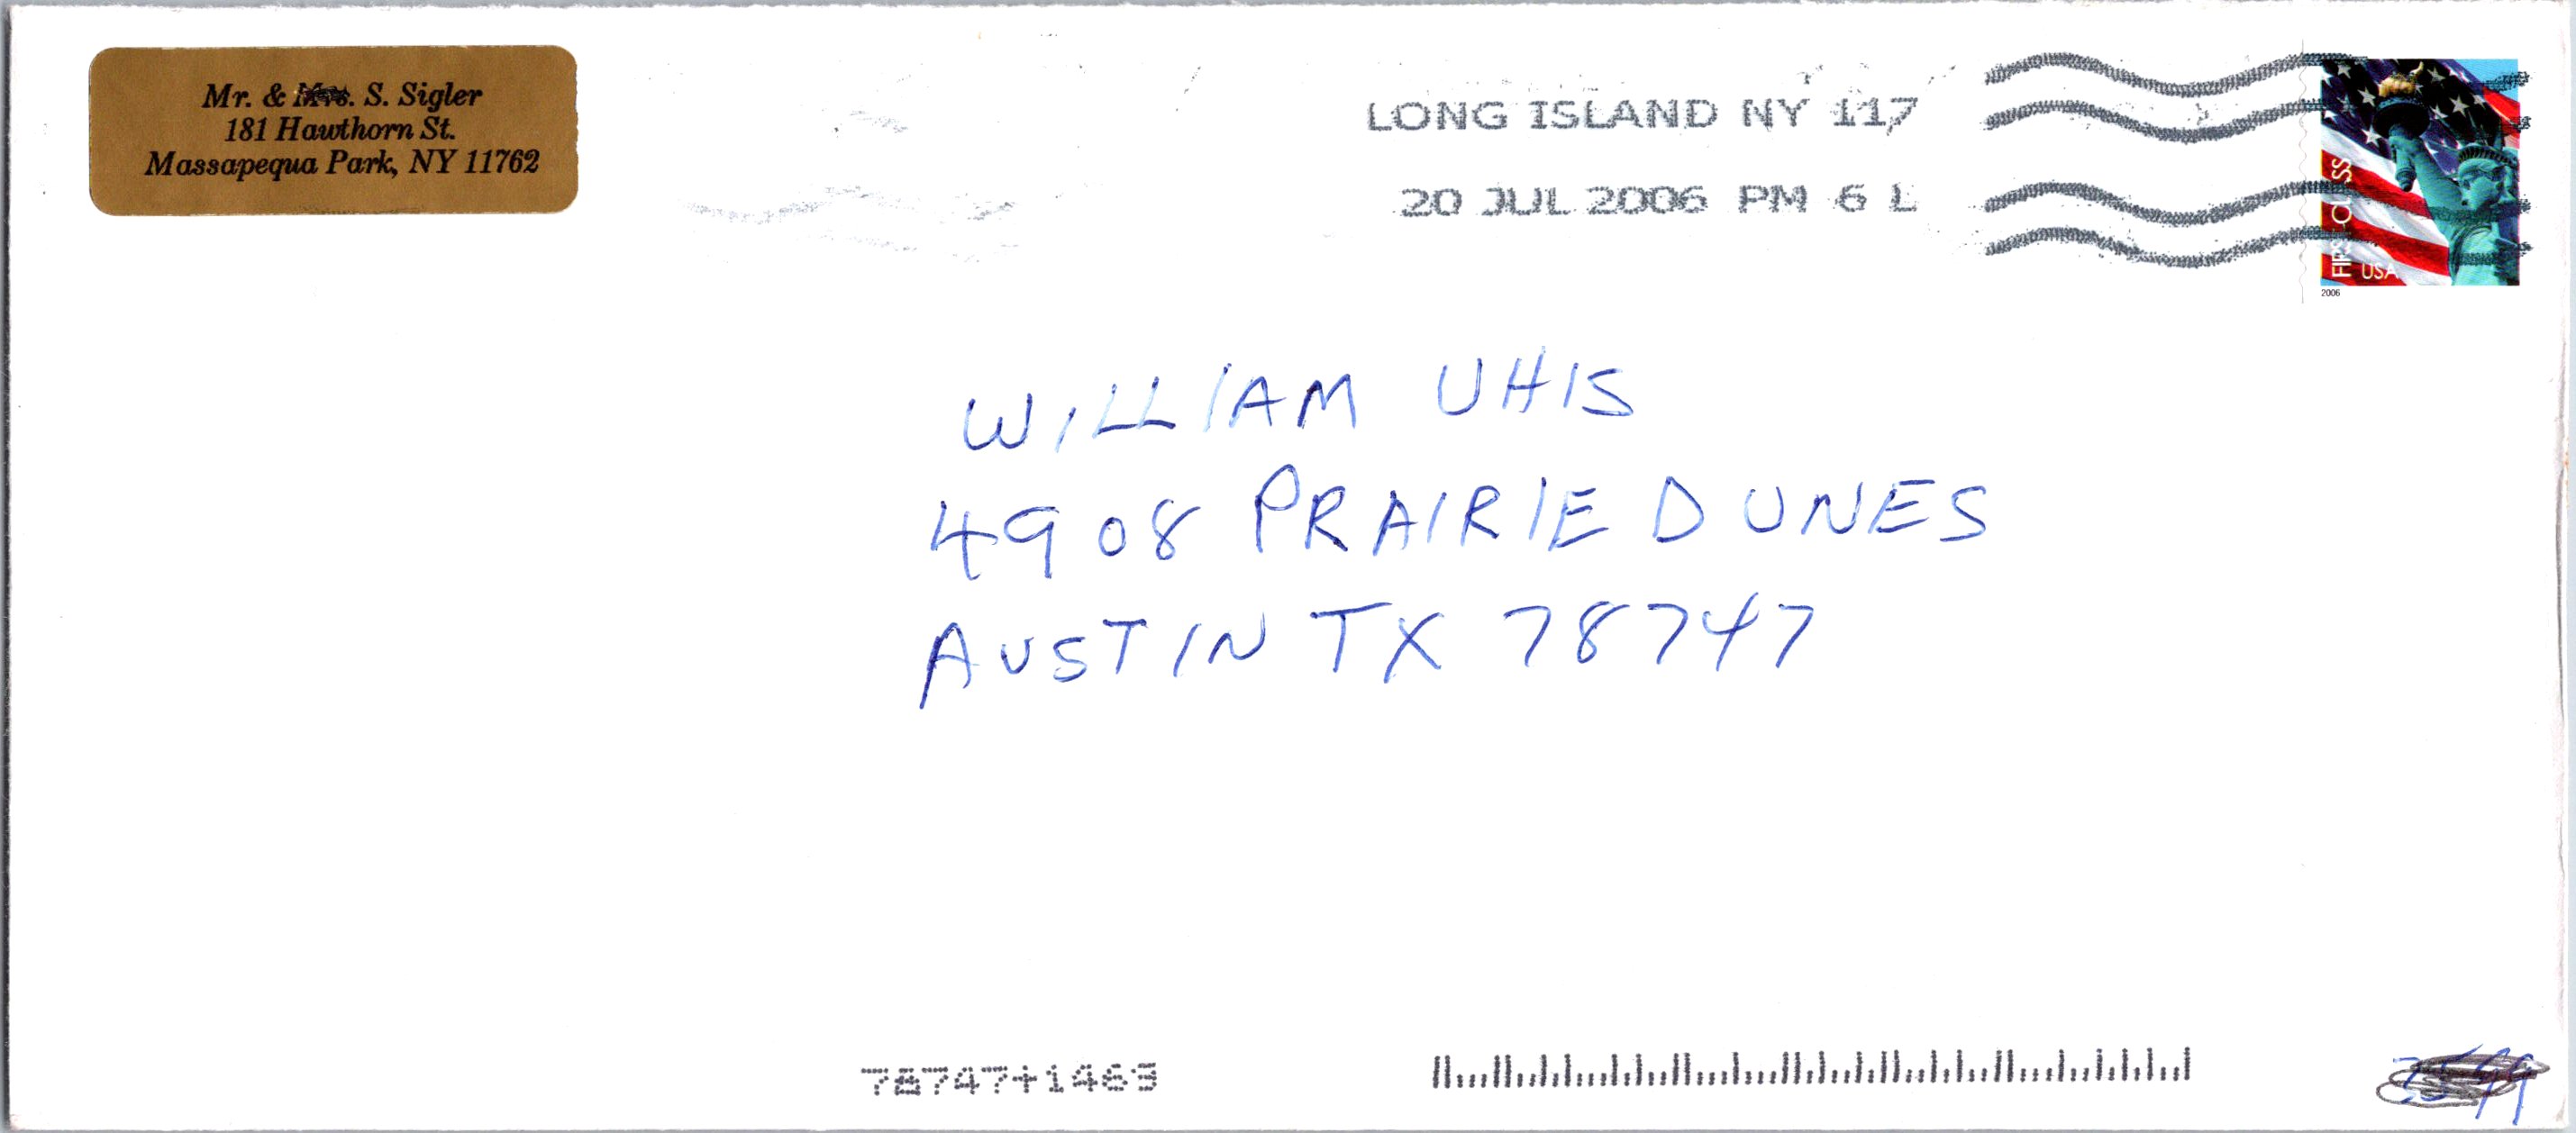 Mr. & Mrs. S. Sigler
181 Hawthorn St.
Massapequa Park, NY 11762
LONG ISLAND NY 117
20 JUL 2006 PM 6 L
FIRST-CLASS
USA
2006
WILLIAM UHIS
4908 PRAIRIE DUNES
AUSTIN TX 78747
78747+1463